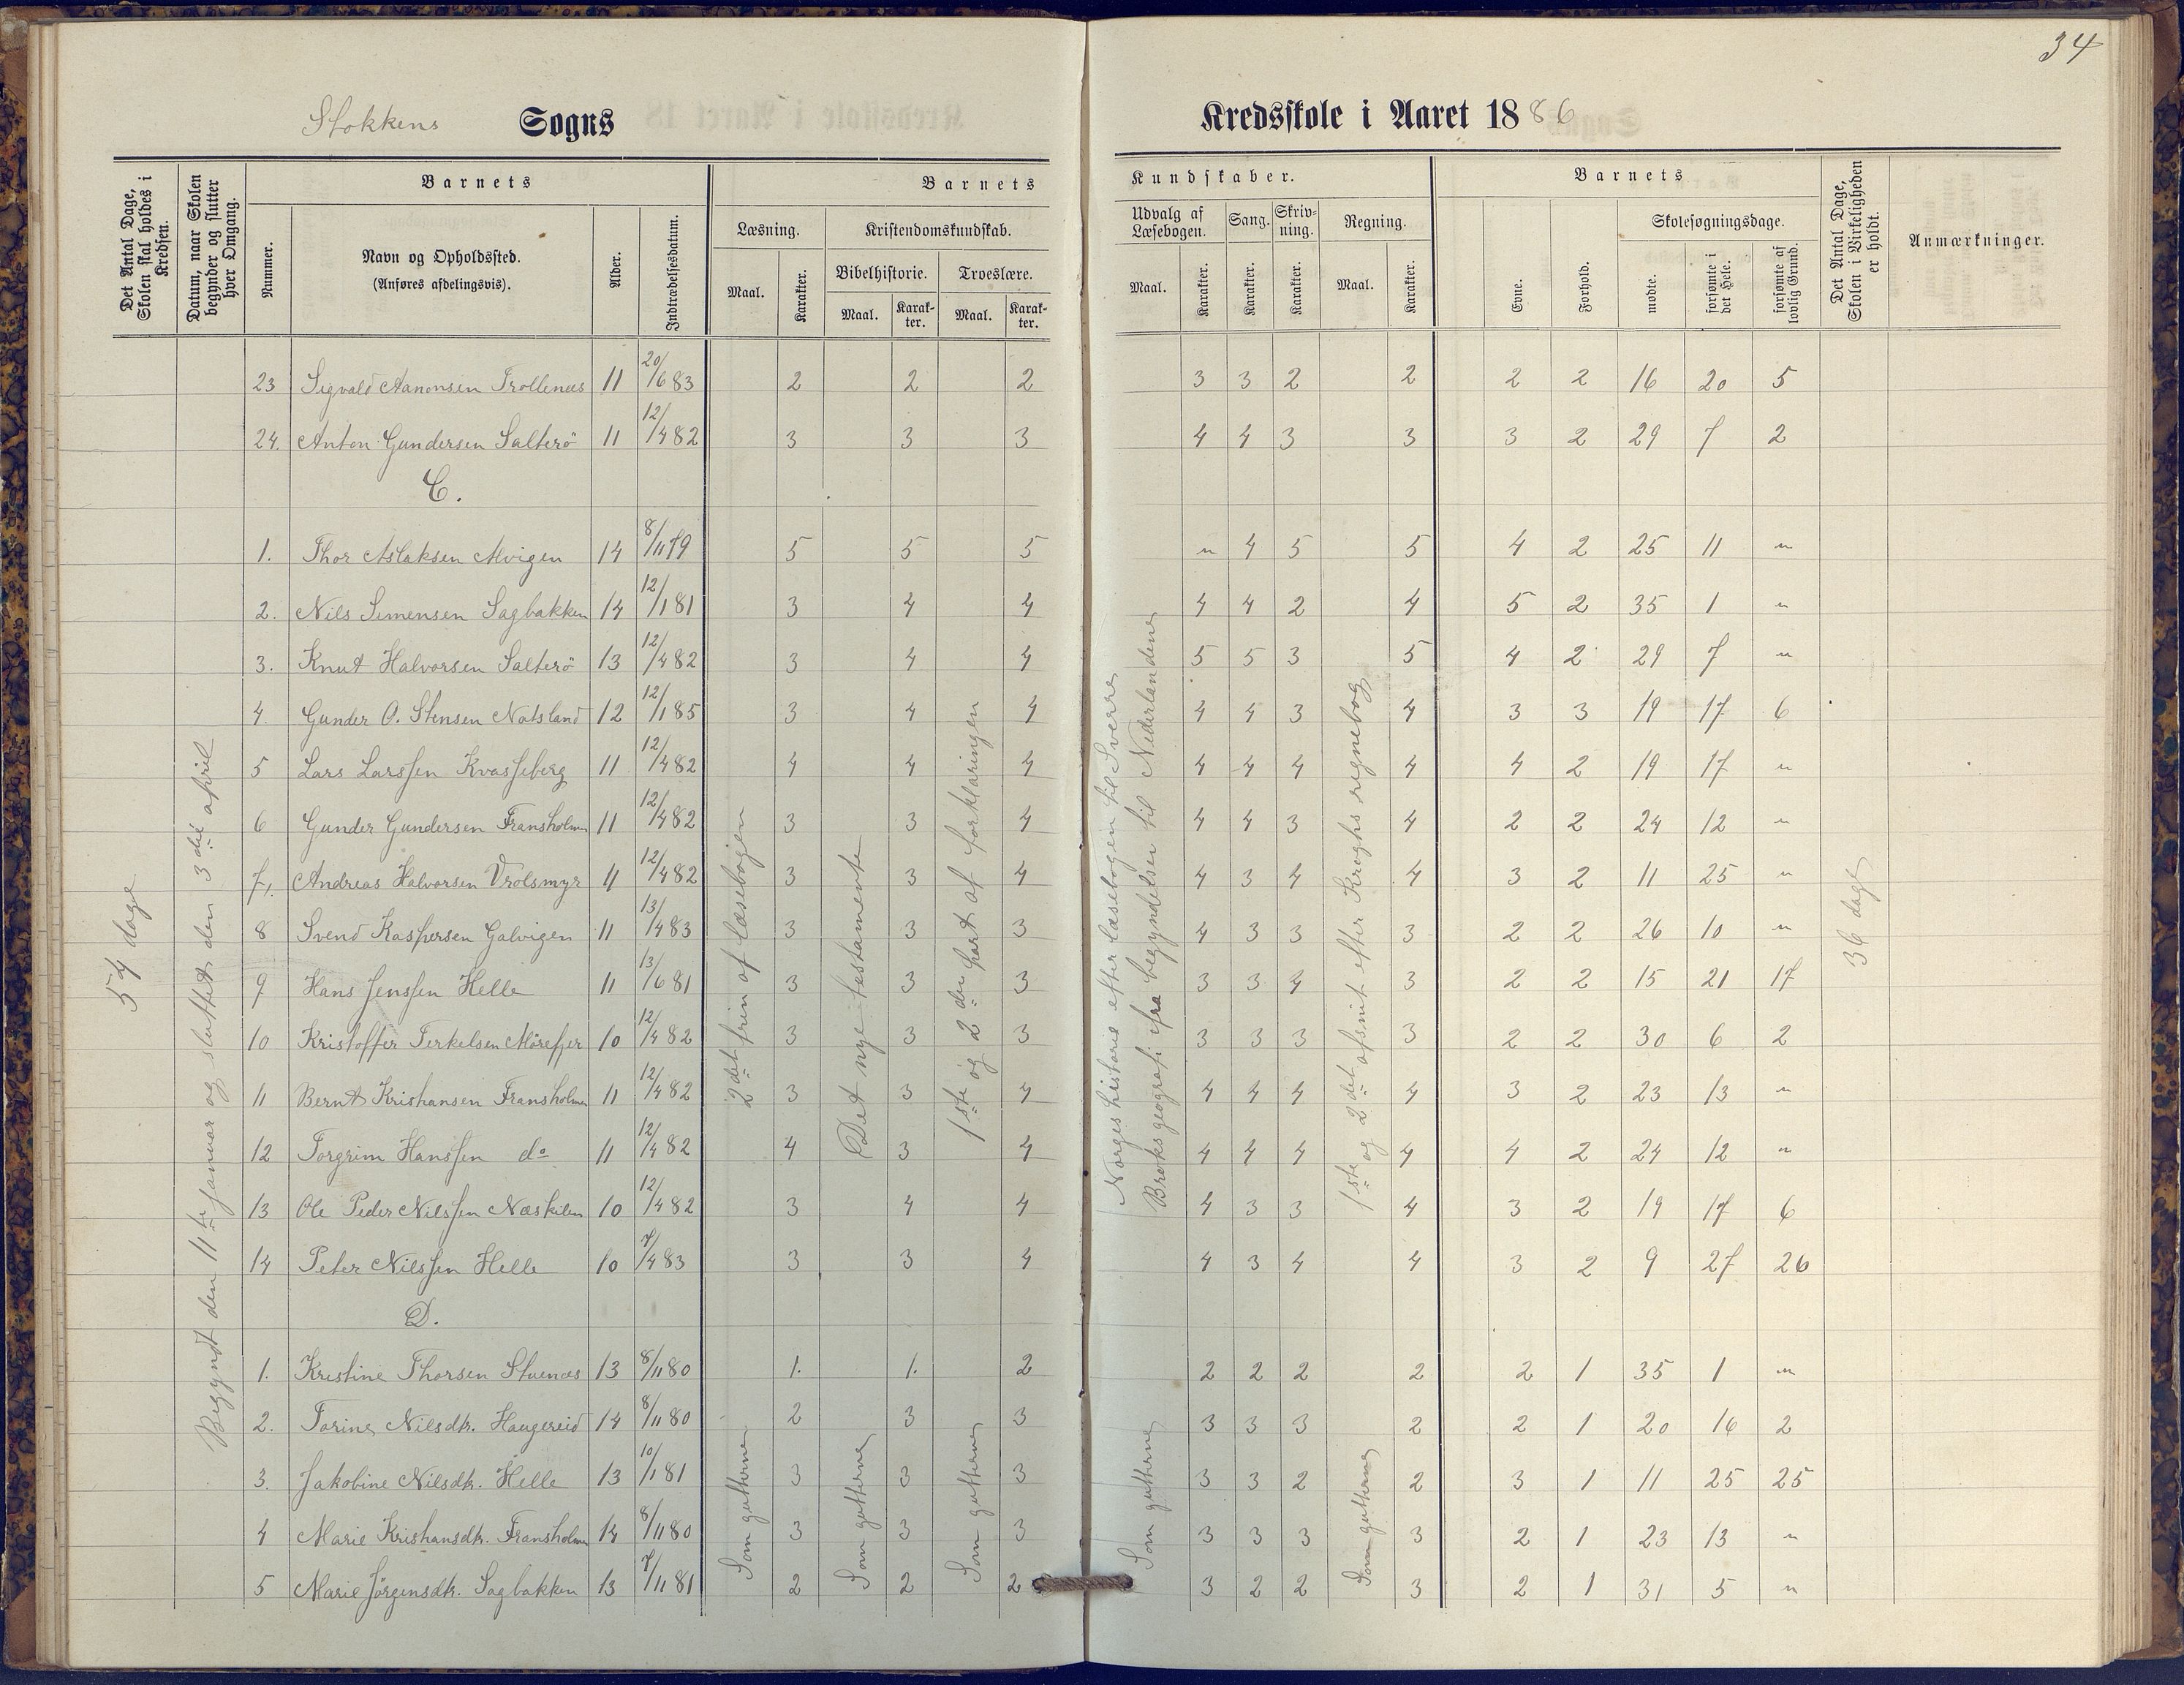 34
Stokkens Sogns Kredsskole i Aaret 1886
Det Antal Dage, Skolen skal holdes i Kredsen.
Datum, naar Skolen begynder og slutter hver Omgang.
Barnets
Nummer.
Navn og Opholdssted.
(Anføres afdelingsvis).
Alder.
Indtrædelsesdatum.
Barnets Kundskaber.
Læsning.
Maal.
Karakter.
Kristendomskundskab.
Bibelhistorie.
Maal.
Karakter.
Troeslære.
Maal.
Karakter.
Udvalg af Læsebogen.
Maal.
Karakter.
Sang.
Karakter.
Skrivning.
Karakter.
Regning.
Maal.
Karakter.
Barnets
Evne.
Forhold.
Skolesøgningsdage.
mødte.
forsømte i det Hele.
forsømte af lovlig Grund.
Det Antal Dage, Skolen i Virkeligheden er holdt.
Anmærkninger.
54 dage
Begyndt den 11te januar og sluttet den 3die april
23 Sigvald Aanonsen Trollenæs 11 20/6 83 2 2 2 3 3 2 2 2 2 16 20 5
24. Anton Gundersen Salterö 11 12/4 82 3 3 3 4 4 3 3 3 2 29 7 2
C.
1. Thor Aslaksen Alvigen 14 8/11 79 5 5 5 " 4 5 5 4 2 25 11 "
2. Nils Simensen Sagbakken 14 12/1 81 3 4 4 4 4 2 4 5 2 35 1 "
3. Knut Halvorsen Salterö 13 12/4 82 3 4 4 5 5 3 5 4 2 29 7 "
4. Gunder O. Stensen Natsland 12 12/1 85 3 4 4 4 4 3 4 3 3 19 17 6
5 Lars Larssen Kvasseberg 11 12/4 82 4 4 4 4 4 4 4 4 2 19 17 "
6 Gunder Gundersen Fransholmen 11 12/4 82 3 3 4 4 4 3 4 2 2 24 12 "
7. Andreas Halvorsen Vrolsmyr 11 12/4 82 3 3 4 4 3 4 4 3 2 11 25 "
8 Svend Kaspersen Galvigen 11 13/4 83 3 3 3 4 3 3 3 2 2 26 10 "
9 Hans Jenssen Helle 11 13/6 81 3 3 3 3 3 4 3 2 2 15 21 17
10 Kristoffer Terkelsen Mörefjer 10 12/4 82 3 3 3 3 3 3 3 2 2 30 6 2
11 Bernt Kristiansen Fransholmen 11 12/4 82 3 3 4 4 4 4 4 3 2 23 13 "
12 Torgrim Hanssen do 11 12/4 82 4 3 4 4 4 4 4 4 2 24 12 "
13 Ole Peder Nilssen Næskilen 10 12/4 82 3 4 4 4 3 3 4 3 2 19 17 6
14 Peter Nilssen Helle 10 7/4 83 3 3 4 4 3 4 4 3 2 9 27 26
2det trin af læsebogen
Det nye testamente
1ste og 2den part af forklaringen
Norges historie efter læsebogen til Sverre
Broks geografi ifra begyndelsen til Nederlandene
1ste og 2det afsnit efter Kroghs regnebog
36 dage
D.
1. Kristine Thorsen Stuenæs 13 8/11 80 1. 1. 2 2 2 2 2 2 1 35 1 "
2. Torine Nilsdtr. Haugereid 14 8/11 80 2 3 3 3 3 3 2 2 1 20 16 2
3. Jakobine Nilsdtr. Helle 13 10/1 81 3 3 3 3 3 2 2 3 1 11 25 25
4 Marie Kristiansdtr. Fransholmen 14 8/11 80 3 3 3 3 3 3 3 2 1 23 13 "
5 Marie Jörgensdtr. Sagbakken 13 7/11 81 2 2 2 3 2 2 3 2 1 31 5 "
Som gutterne
Som gutterne
Som gutterne
Som gutterne
Som gutterne